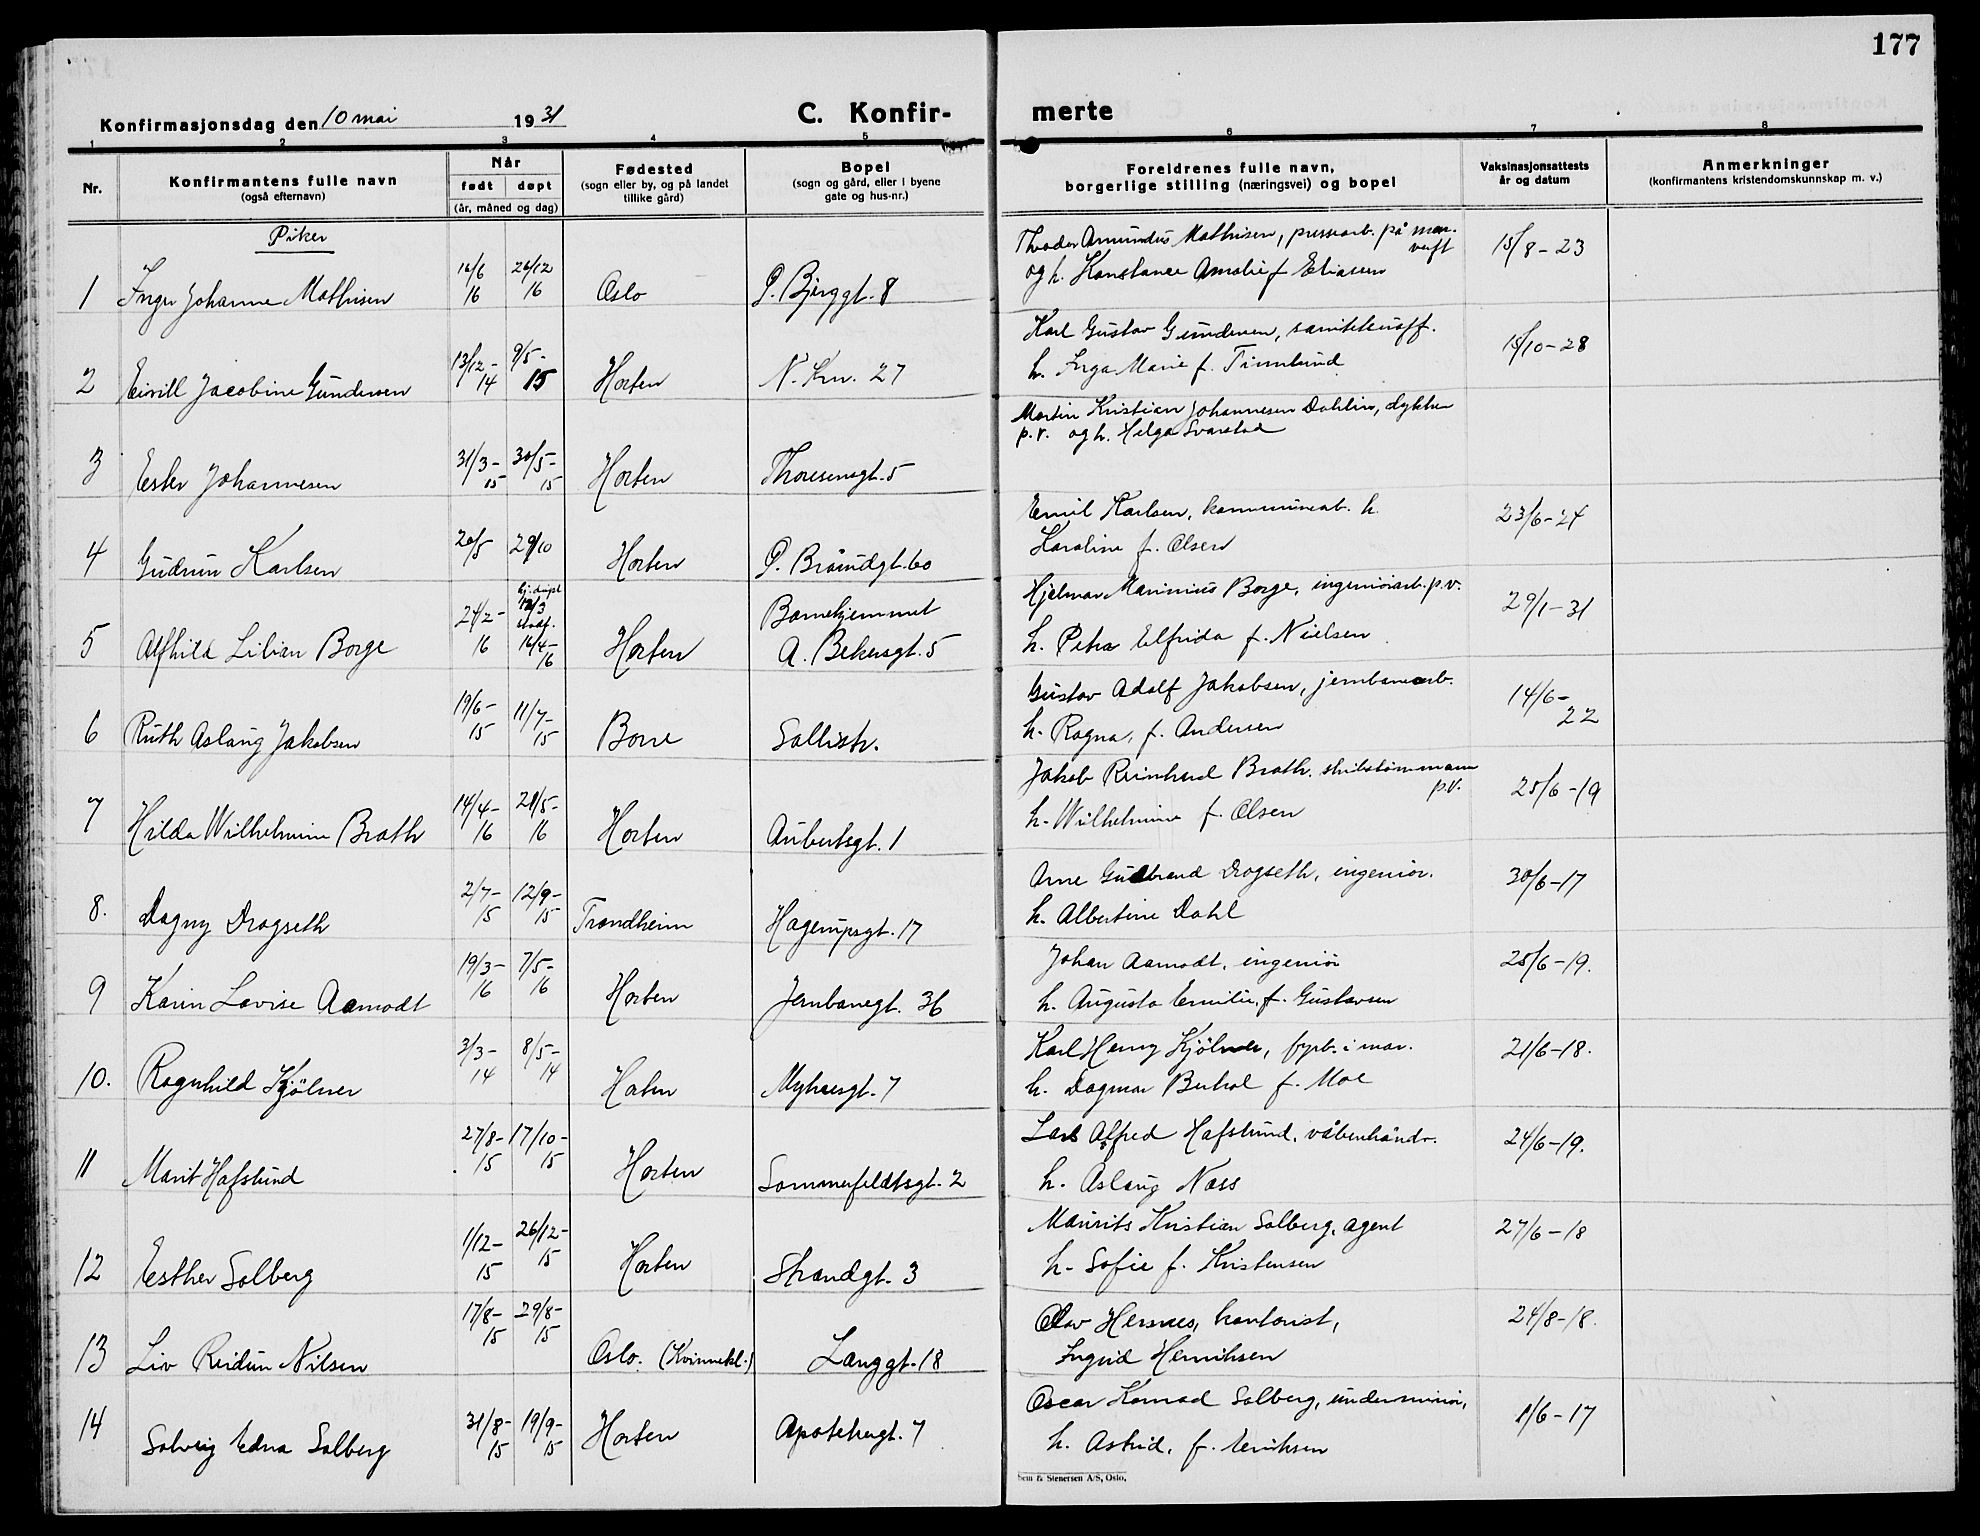 177
Konfirmasjonsdag den 10 mai 1931
C. Konfir-
merte
1 2 3 4 5 6 7 8
Nr.
Konfirmantens fulle navn
(også efternavn)
Når
født døpt
(år, måned og dag)
Fødested
(sogn eller by, og på landet
tillike gård)
Bopel
(sogn og gård, eller i byene
gate og hus-nr.)
Foreldrenes fulle navn,
borgerlige stilling (næringsvei) og bopel
Vaksinasjonsattests
år og datum
Anmerkninger
(konfirmantens kristendomskunnskap m. v.)
Piker
1 Inger Johanne Mathisen 16/6 16 26/12 16 Oslo P. Bjørggt. 8
Amundus Mathisen, på mar. verft 15/8-23
og h. Konstance Amalie f. Eliasen
2 Jacobine Gundersen 13/12-14 9/5-15 Horten N. Krn. 27
Karl Gustav Gundersen, 15/10-28
h. Inga Marie f.
3 Ester Johannesen 31/3-15 30/5-15 Horten Thoresensgt. 5
Martin Kristian Johannesen Dahlin, dykker
p.v. og h. Helga Svarstad
4 Gudrun Karlsen 20/5 29/10 Horten P. Brøundgt. 60
Emil Karlsen, kommunearb. h. 23/6-24
Karoline f. Olsen
5 Alfhild Lilian Borge 24/2-16 hj.døpt 12/3 stadf. 16/4-16 Horten Barnehjemmet
A. Bekersgt. 5
Hjelmar Marinius Borge, ingeniørarb. p.v. 29/1-31
h. Petra Elfrida f. Nielsen
6 Ruth Aslaug Jakobsen 19/6-15 11/7-15 Borre Sollistr.
Gustav Adolf Jakobsen, jernbanearb. 14/6-22
h. Ragna, f. Andersen
7 Hilda Wilhelmine Brath 14/4-16 28/5-16 Horten Aubertsgt. 1
Jakob Reinhard Brath, skibstømmermann p.v. 25/6-19
h. Wilhelmine f. Olsen
8. Dagny Dragseth 2/7-15 12/9-15 Trondheim Hagerupsgt. 17
Arne Gudbrand Dragseth, ingeniør. 30/6-17
h. Albertine Dahl
9 Karin Lovise Aamodt 19/3-16 7/5-16 Horten Jernbanegt. 36
Johan Aamodt, ingeniør 25/6-19.
h. Augusta Emilie, f. Gustavsen
10. Ragnhild Kjølner 3/3-14 8/5-14 Horten Myhresgt. 7
Karl Henry Kjølner, fyrb. i mar. 21/6-18.
h. Dagmar f. Moe
11 Marit Hafslund 27/8-15 17/10-15 Horten Sommerfeldtsgt. 2
Lars Alfred Hafslund, våbenhåndv. 24/6-19.
h. Aslaug Næss
12 Esther Solberg 1/12-15 26/12-15 Horten Strandgt. 3
Maurits Kristian Solberg, agent 27/6-18
h. Sofie f. Kristensen
13 Liv Reidun Nilsen 17/8-15 29/8-15 Oslo. (Kvinnekl.) Langgt. 18
Olav Hersnes, kontorist, 24/8-18.
Ingrid Henriksen
14 Solveig Edna Solberg 31/8-15 19/9-15 Horten Apotekergt. 7
Oscar Konrad Solberg, underminør, 1/6-17
h. Astrid, f. Eriksen
Sem & Stenersen A/S, Oslo.